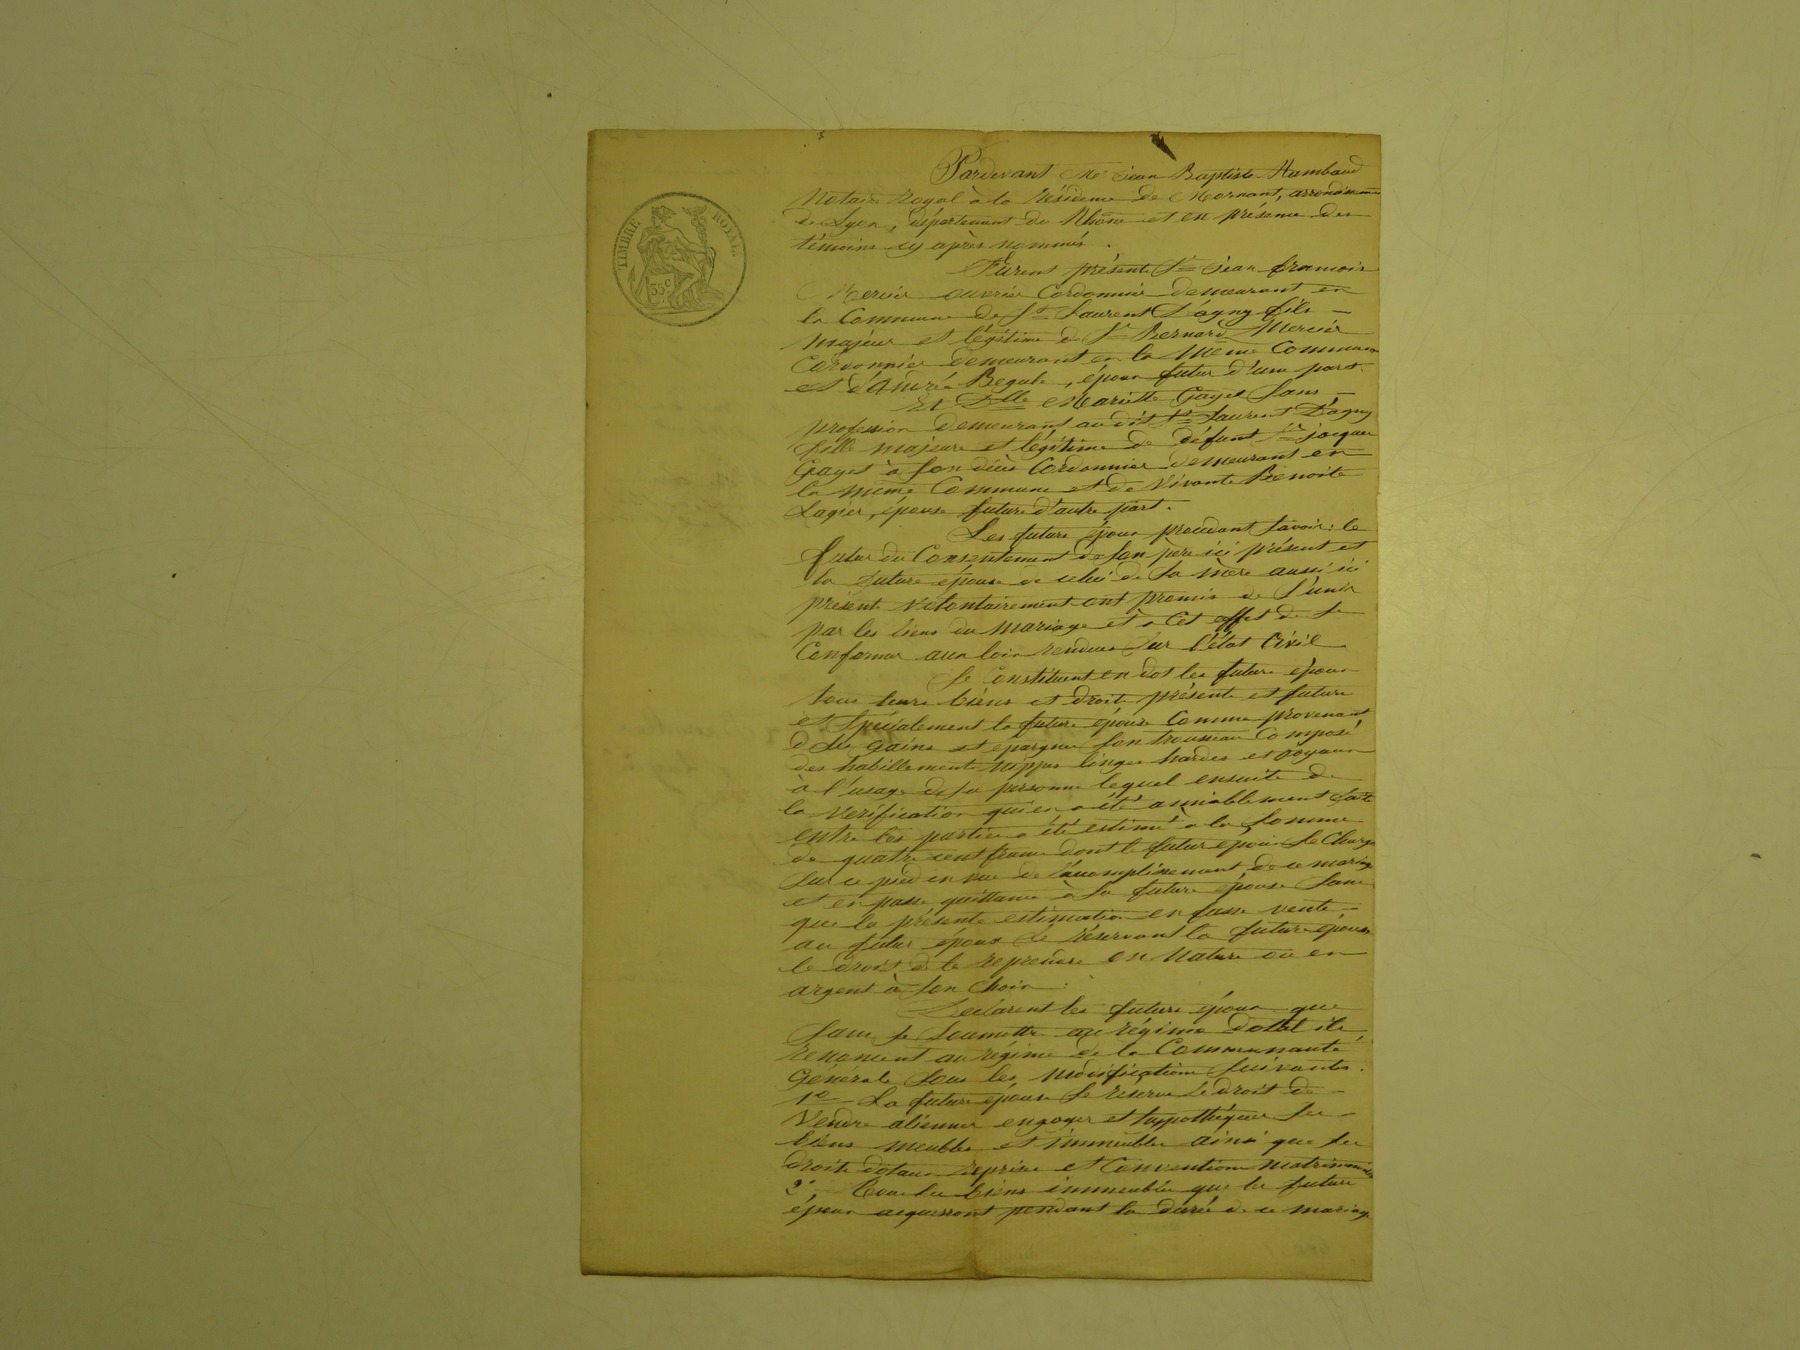 TIMBRE ROYAL
35 c
Pardevant Me Jean Baptiste Humbaud
Notaire Royal à la résidence de Mornant, arrondissement
de Lyon, département du Rhône et en présence des
témoins cy après nommés.
Furent présents Sr Jean françois
Mercier ouvrier Cordonnier demeurant en
la Commune de St Laurent D'agny fils
majeur et légitime de Sr Bernard Mercier
Cordonnier demeurant en la Même Commune
et d'Andrée Begule, époux futur d'une part.
Et Dlle Mariette Gayet Sans
profession demeurant au dit St Laurent D'agny
fille majeure et légitime de défunt Sr jacques
Gayet à Son décès Cordonnier demeurant en
la même Commune et de Vivante Benoite
Lagier, épouse future d'autre part.
Les futurs époux procédant Savoir: le
futur du Consentement de Son père ici présent et
la future épouse de celui de Sa mère aussi ici
présente Volontairement ont promis de S'unir
par les liens du mariage et à Cet effet de Se
Conformer aux loix rendues Sur l'état Civil
Se Constituent en dot les futurs époux
tous leurs biens et droits présents et futurs
et Spécialement la future épouse Comme provenant
de Ses gains et epargnes Son trousseau Composé
des habillements nippes linges hardes et joyaux
à l'usage de Sa personne lequel ensuite de
la Vérification qui en a été amiablement faite
entre les parties a été estimé à la Somme
de quatre cent francs dont le futur époux Se Charge
Sur ce pied en vue de l'accomplissement de ce mariage
et en passe quittance à Sa future épouse Sans
que la présente estimation en fasse vente
au futur époux Se réservant la future épouse
le droit de le reprendre en Nature ou en
argent à Son Choix.
Declarent les futurs époux que
Sans Se Soumettre au régime dotal ils
renoncent au régime de la Communauté
Générale Sous les Modifications Suivantes.
1o La future épouse Se réserve le droit de
Vendre aliéner engager et hypothéquer Ses
biens meubles et immeubles ainsi que Ses
droits dotaux reprises et Conventions Matrimoniales
2o, Tous les biens immeubles que les futurs
époux acquerront pendant la durée de ce mariage